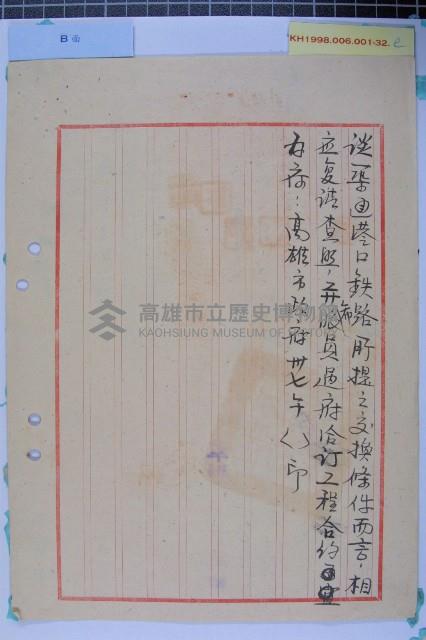 B面
KH1998.006.001-32.
談一渠迴港口鉄路所提之交換條件而言，相
应复請查照，并派員過府洽訂工程合約宜
為荷：高雄市政府卅七午（）印
高雄市立歷史博物館
KAOHSIUNG MUSEUM OF HISTORY